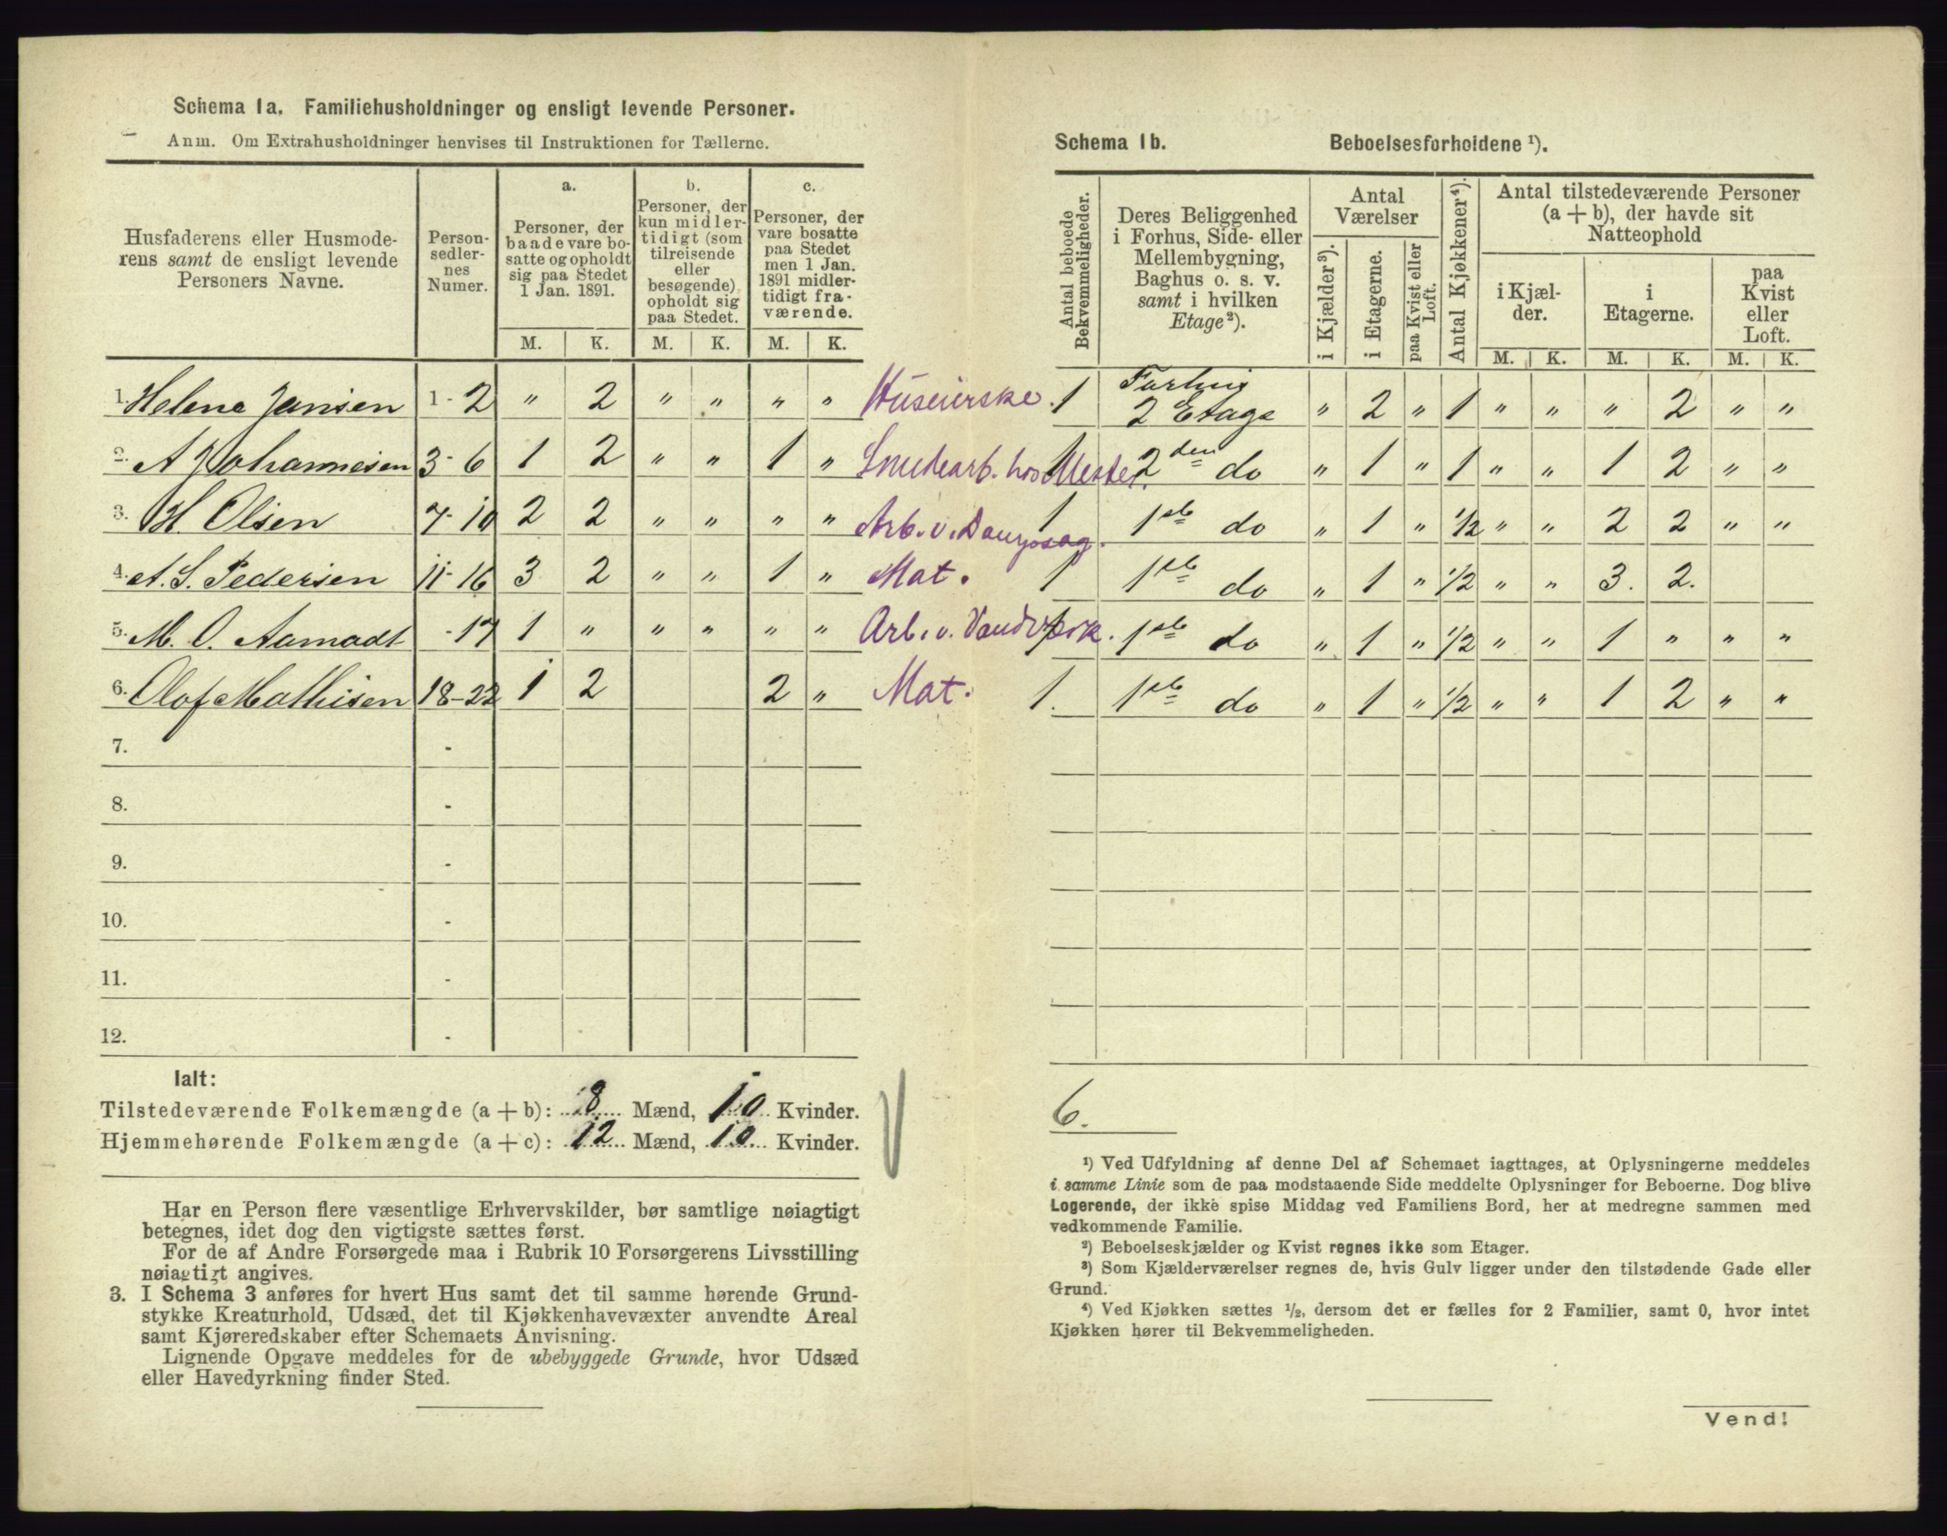 Schema 1a. Familiehusholdninger og ensligt levende Personer.
Anm. Om Extrahusholdninger henvises til Instruktionen for Tællerne.
Husfaderens eller Husmode-
rens samt de ensligt levende
Personers Navne.
Person-
sedler-
nes
Numer.
a.
Personer, der
baade vare bo-
satte og opholdt
sig paa Stedet
1 Jan. 1891.
b.
Personer, der
kun midler-
tidigt (som
tilreisende
eller
besøgende)
opholdt sig
paa Stedet.
c.
Personer, der
vare bosatte
paa Stedet
men 1 Jan.
1891 midler-
tidigt fra-
værende.
M. K. M. K. M. K.
1. Helene Jansen 1-2 " 2 " " " " Huseierske.
2. A Johannesen 3-6 1 2 " " 1 " Smedearb. hos Mester.
3. H. Olsen 7-10 2 2 " " " " Arb. v. Dampsag.
4. A. S. Pedersen 11-16 3 2 " " 1 " Mat.
5. M. O. Aamodt -17 1 " " " " " Arb. v. Vandværk.
6. Olof Mathisen 18-22 1 2 2 " Mat.
7. -
8. -
9. -
10. -
11. -
12. -
Ialt:
Tilstedeværende Folkemængde (a + b): 8 Mænd, 10 Kvinder.
Hjemmehørende Folkemængde (a + c): 12 Mænd, 10 Kvinder.
Har en Person flere væsentlige Erhvervskilder, bør samtlige nøiagtigt
betegnes, idet dog den vigtigste sættes først.
For de af Andre Forsørgede maa i Rubrik 10 Forsørgerens Livsstilling
nøiagtigt angives.
3. I Schema 3 anføres for hvert Hus samt det til samme hørende Grund-
stykke Kreaturhold, Udsæd, det til Kjøkkenhavevæxter anvendte Areal
samt Kjøreredskaber efter Schemaets Anvisning.
Lignende Opgave meddeles for de ubebyggede Grunde, hvor Udsæd
eller Havedyrkning finder Sted.
Schema 1b. Beboelsesforholdene ¹).
Antal beboede
Bekvemmeligheder.
Deres Beliggenhed
i Forhus, Side- eller
Mellembygning,
Baghus o. s. v.
samt i hvilken
Etage²).
Antal
Værelser
i Kjælder³).
i Etagerne.
paa Kvist eller
Loft.
Antal Kjøkkener⁴).
Antal tilstedeværende Personer
(a + b), der havde sit
Natteophold
i Kjæl-
der.
i
Etagerne.
paa
Kvist
eller
Loft.
M. K. M. K. M. K.
1 2 Etage " 2 " 1 " " " 2 " "
1 2den do " 1 " 1 " " 1 2 " "
1 1ste do " 1 " 1/2 " " 2 2 " "
1 1ste do " 1 " 1/2 " " 3. 2.
1 1ste do " 1 " 1/2 " " 1 " " "
1. 1ste do " 1 " 1/2 " " 1 2 " "
6.
¹) Ved Udfyldning af denne Del af Schemaet iagttages, at Oplysningerne meddeles
i samme Linie som de paa modstaaende Side meddelte Oplysninger for Beboerne. Dog blive
Logerende, der ikke spise Middag ved Familiens Bord, her at medregne sammen med
vedkommende Familie.
²) Beboelseskjælder og Kvist regnes ikke som Etager.
³) Som Kjælderværelser regnes de, hvis Gulv ligger under den tilstødende Gade eller
Grund.
⁴) Ved Kjøkken sættes 1/2, dersom det er fælles for 2 Familier, samt 0, hvor intet
Kjøkken hører til Bekvemmeligheden.
Vend!